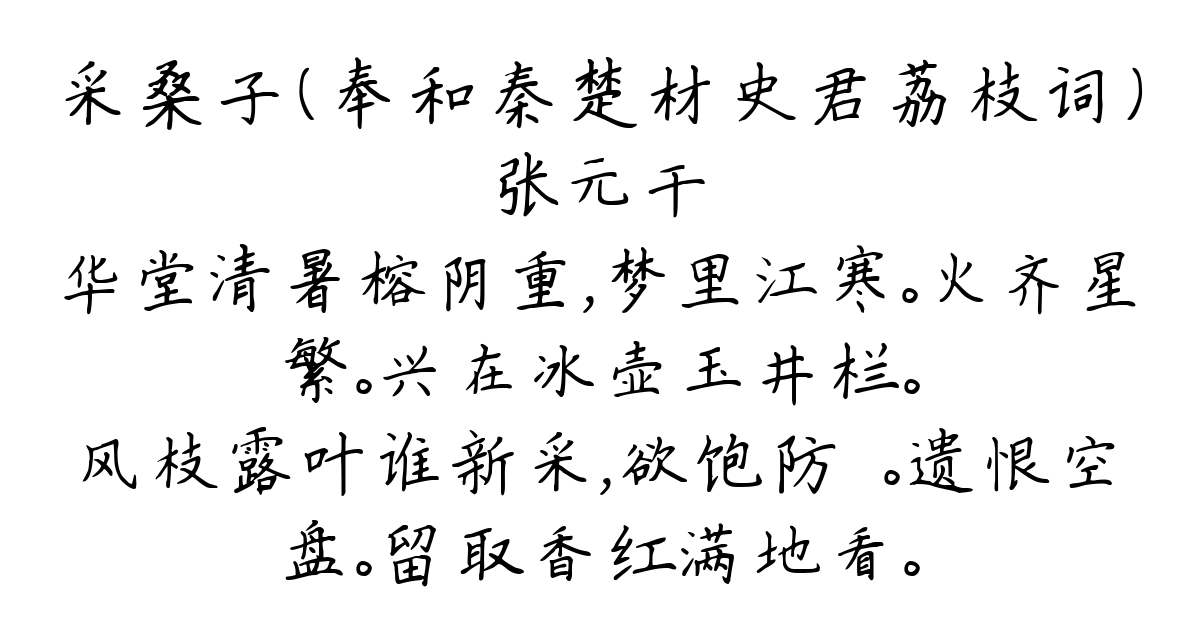 采桑子(奉和秦楚材史君荔枝词)
张元干
华堂清暑榕阴重,梦里江寒。火齐星
繁。兴在冰壶玉井栏。
风枝露叶谁新采,欲饱防 。遗恨空
盘。留取香红满地看。